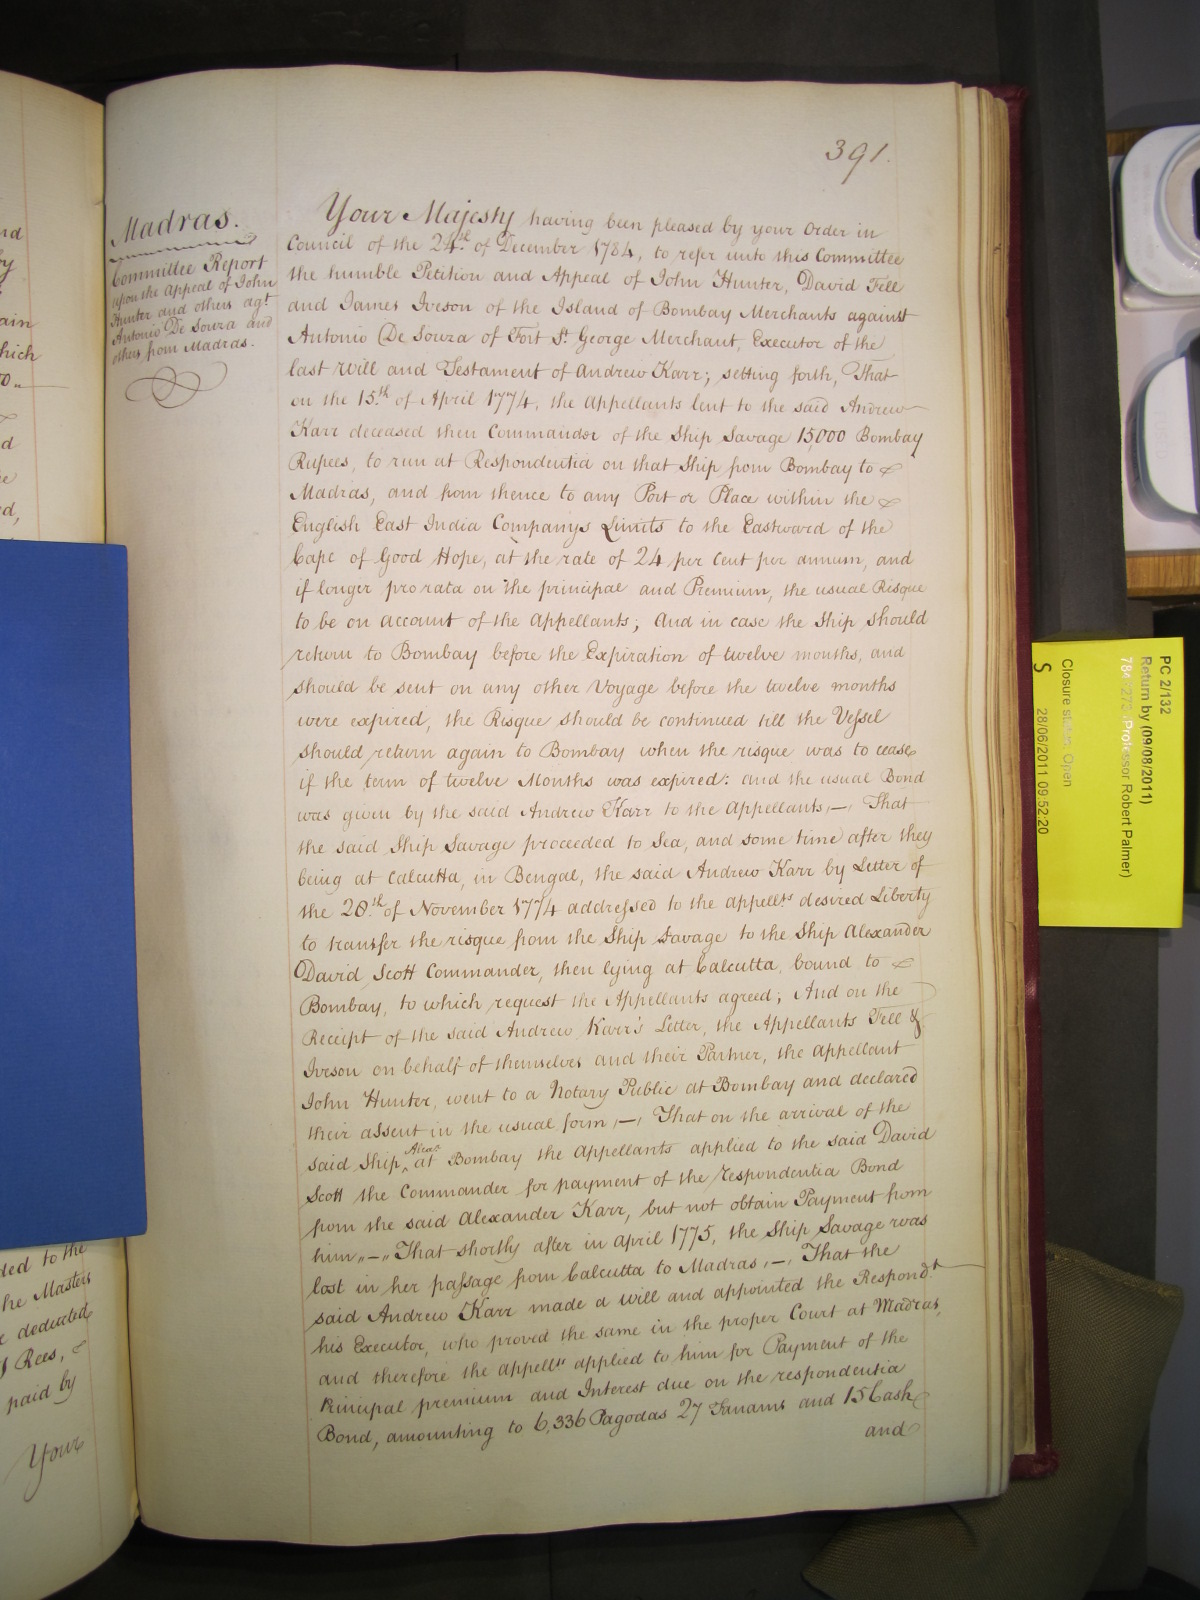 391.
Madras.
Committee Report
upon the Appeal of John
Hunter and others agt.
Antonio De Souza and
others from Madras.
Your Majesty having been pleased by your Order in
Council of the 24th. of December 1784, to refer unto this Committee
the humble Petition and Appeal of John Hunter, David Fell
and James Iveson of the Island of Bombay Merchants against
Antonio De Souza of Fort St. George Merchant, Executor of the
last Will and Testament of Andrew Karr; setting forth, That
on the 15th of April 1774, the Appellants lent to the said Andrew
Karr deceased then Commander of the Ship Savage 15,000 Bombay
Rupees, to run at Respondentia on that Ship from Bombay to
Madras, and from thence to any Port or Place within the
English East India Companys Limits to the Eastward of the
Cape of Good Hope, at the rate of 24 per Cent per annum, and
if longer pro rata on the principal and Premium, the usual Risque
to be on account of the Appellants; And in case the Ship should
return to Bombay before the Expiration of twelve months, and
should be sent on any other Voyage before the twelve months
were expired, the Risque should be continued till the Vessel
should return again to Bombay when the risque was to cease
if the term of twelve Months was expired: and the usual Bond
was given by the said Andrew Karr to the Appellants,—, That
the said Ship Savage proceeded to Sea, and some time after they
being at Calcutta, in Bengal, the said Andrew Karr by Letter of
the 28th. of November 1774 addressed to the appellts desired Liberty
to transfer the risque from the Ship Savage to the Ship Alexander
David Scott Commander, then lying at Calcutta, bound to
Bombay, to which request the Appellants agreed; And on the
Receipt of the said Andrew Karr's Letter, the Appellants Fell &
Iveson on behalf of themselves and their Partner, the appellant
John Hunter, went to a Notary Public at Bombay and declared
their assent in the usual form,—, That on the arrival of the
said Ship Alexr at Bombay the Appellants applied to the said David
Scott the Commander for payment of the respondentia Bond
from the said Alexander Karr, but not obtain Payment from
him,,—,, That shortly after in April 1775, the Ship Savage was
lost in her passage from Calcutta to Madras,—, That the
said Andrew Karr made a will and appointed the Respondt
his Executor, who proved the same in the proper Court at Madras,
and therefore the appellts applied to him for Payment of the
Principal premium and Interest due on the respondentia
Bond, amounting to 6,336 Pagodas 27 Fanams and 15 Cash
and
ain
hich
ded to the
the Masters
dedicated
Rees,
paid by
Your
PC 2/132
Return by (09/08/2011)
Professor Robert Palmer)
Closure status: Open
S 28/06/2011 09:52:20